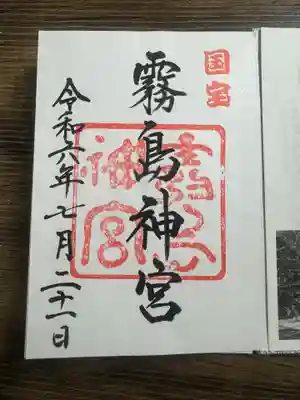 国宝
霧島神宮
霧島神宮
令和六年七月二十一日